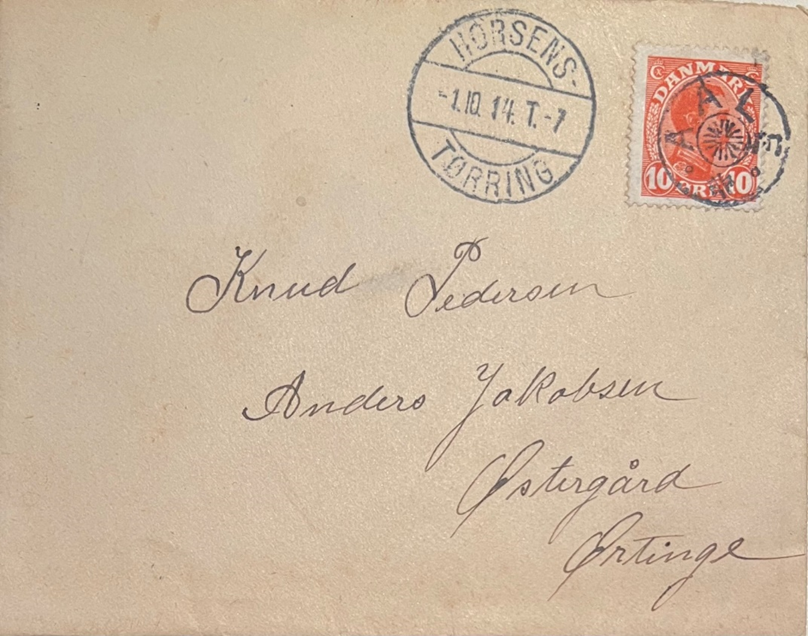 HORSENS-
-1.10.14. T.-7
TØRRING
DANMARK
10 ØRE 10
Knud Pedersen
Anders Jakobsen
Østergård
Ørtinge